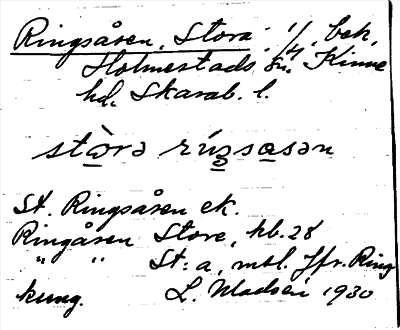 Ringsåsen, Stora 1/4, bek.
Holmestads sn. Kinne
hd. Skarab. l.
stòra ríŋsɑsən
St. Ringsåsen ek.
Ringåsen Store, hb. 28
" " St:a, mtl. Jfr. Ring
kung. L. Madsén 1930